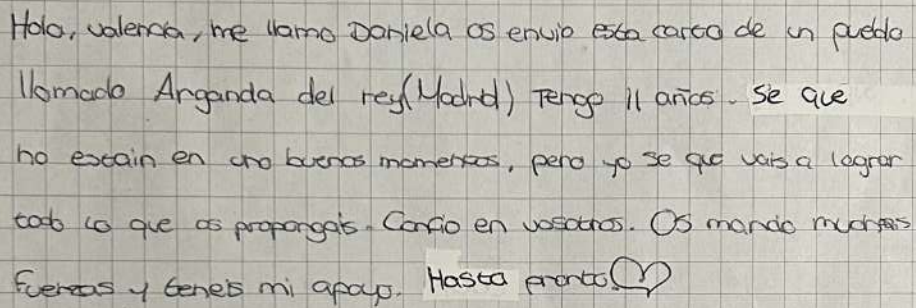 Hola, valencia, me llamo Daniela os envio esta carta de un pueblo
llamado Arganda del rey (Madrid) Tengo 11 años. Se que
no estain en uno buenos momentos, pero yo se que vais a lograr
todo lo que os propongais. Confio en vosotros. Os mando muchas
fuerzas y teneis mi apoyo. Hasta pronto